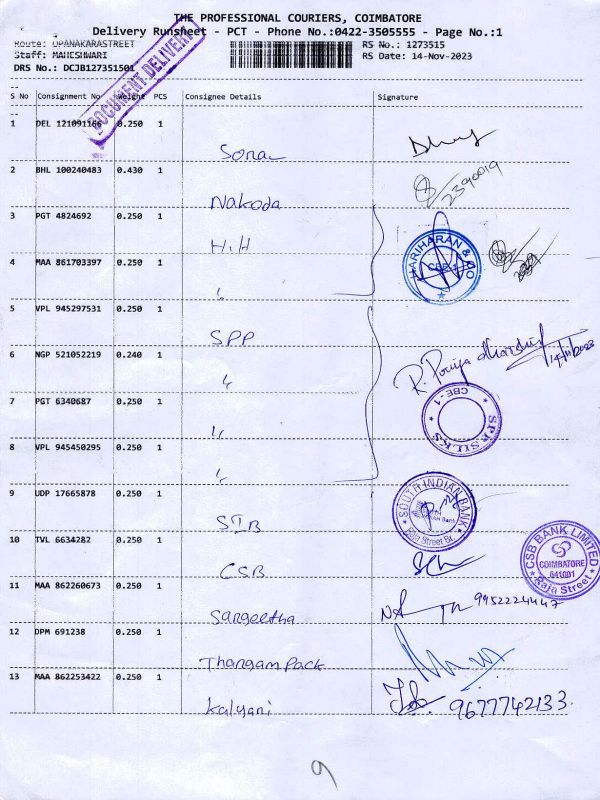 THE PROFESSIONAL COURIERS, COIMBATORE
Delivery Runsheet - PCT - Phone No.:0422-3505555 - Page No.:1
Route: OPANAKARASTREET
RS No.: 1273515
Staff: MAHESHWARI
RS Date: 14-Nov-2023
DRS No.: DCJB127351501
DOCUMENT DELIVERY
S No Consignment No Weight PCS Consignee Details Signature
1 DEL 121091166 0.250 1
Sona
2 BHL 100240483 0.430 1
Nakoda
2390019
3 PGT 4824692 0.250 1
H.H
HARIHARAN & CO
CBE-1
4 MAA 861703397 0.250 1
"
5 VPL 945297531 0.250 1
SPP
6 NGP 521052219 0.240 1
"
R. Poriya dharshini 14/11/2023
7 PGT 6340687 0.250 1
"
CBE-1
S.P.P. SILKS
8 VPL 945450295 0.250 1
"
9 UDP 17665878 0.250 1
SIB
SOUTH INDIAN BANK
Raja Street Br.
10 TVL 6634282 0.250 1
CSB
CSB BANK LIMITED
COIMBATORE
641001
Raja Street
11 MAA 862260673 0.250 1
Sangeetha
9952224447
12 DPM 691238 0.250 1
Thangam Pack
13 MAA 862253422 0.250 1
Kalyani
9677742133
9